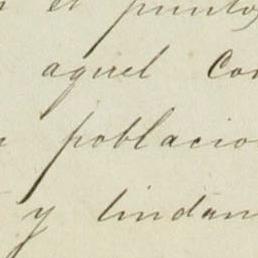 el punto
aquel Con
poblacio
y lindan